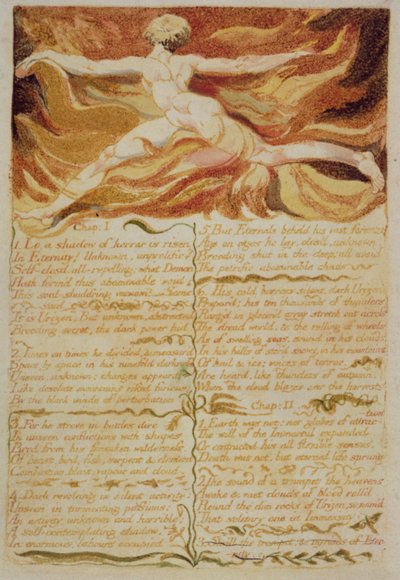 Chap: I
1. Lo, a shadow of horror is risen
In Eternity! Unknown, unprolific
Self-closd, all-repelling; what Demon
Hath form'd this abominable void
This soul-shudd'ring vacuum? Some said
It is Urizen, But unknown, abstracted
Brooding secret, the dark power hid.
2. Times on times he divided, & measur'd
Space by space in his ninefold darkness
Unseen, unknown: changes appeard
In his desolate mountains rifted furious
By the black winds of perturbation
3. For he strove in battles dire
In unseen conflictions with shapes
Bred from his forsaken wilderness,
Of beast, bird, fish, serpent & element
Combustion, blast, vapour and cloud.
4. Dark revolving in silent activity:
Unseen in tormenting passions;
An activity unknown and horrible;
A self-contemplating shadow,
In enormous labours occupied
5. But Eternals beheld his vast forests
Age on ages he lay, clos'd, unknown,
Brooding shut in the deep; all avoid
The petrific abominable chaos
6. His cold horrors silent, dark Urizen
Prepar'd; his ten thousands of thunders
Rang'd in gloom'd array stretch out across
The dread world, & the rolling of wheels
As of swelling seas, sound in his clouds
In his hills of stor'd snows, in his mountains
Of hail & ice; voices of terror,
Are heard, like thunders of autumn,
When the cloud blazes over the harvests
Chap: II
1. Earth was not: nor globes of attrac-
-tion
The will of the Immortal expanded
Or contracted his all flexible senses.
Death was not, but eternal life sprung
2. The sound of a trumpet the heavens
Awoke & vast clouds of blood roll'd
Round the dim rocks of Urizen, so nam'd
That solitary one in Immensity
3. Shrill the trumpet: & myriads of Eter-
-nity,